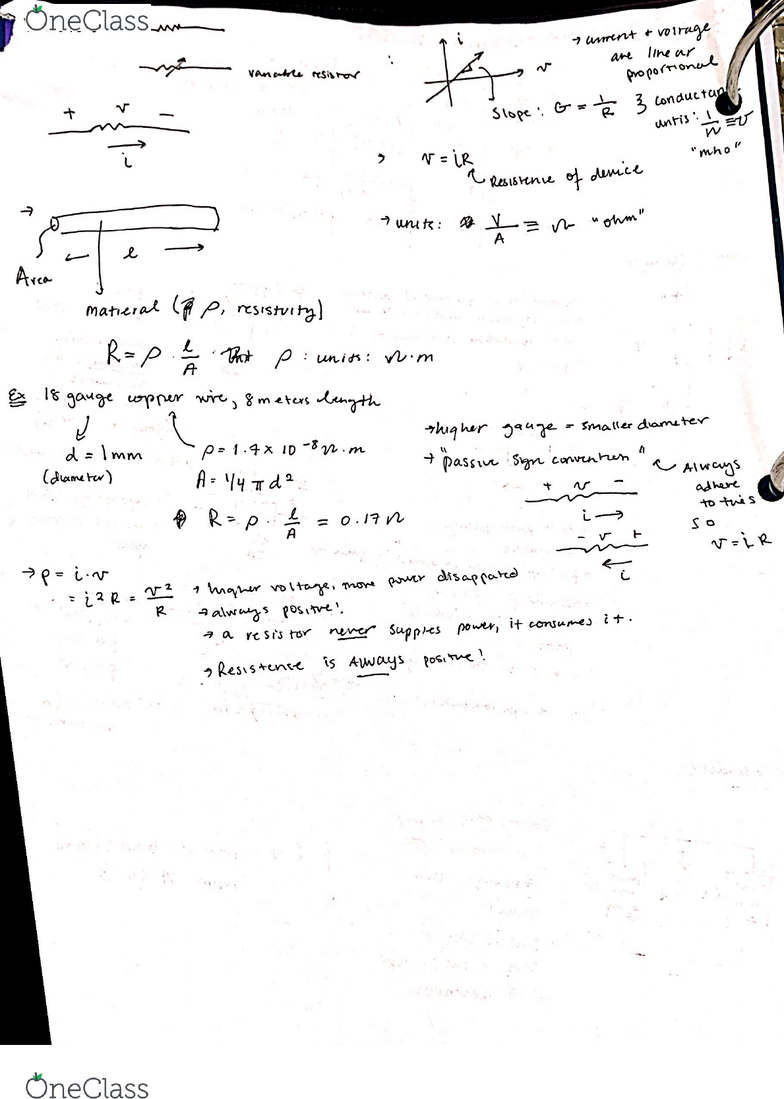 OneClass
variable resistor
i
v
→ current + voltage
are linear
proportional
slope: G = 1/R } conductan
untis: 1/Ω ≡ ℧
"mho"
+ v −
i
v = iR
Resistence of device
→ units: V/A ≡ Ω "ohm"
→
Area
l
matieral (ρ, resistvity]
R = ρ · l/A · ρ : units: Ω·m
Ex 18 gauge copper wire, 8 meters length
d = 1mm
(diameter)
ρ = 1.7 x 10 -8 Ω.m
A = 1/4 π d²
R = ρ · l/A = 0.17 Ω
→ higher gauge = smaller diameter
→ "passive sign convention"
Always
adhere
to this
so
v = i R
+ v −
i →
− v +
← i
→ p = i·v
= i²R = v²/R
→ higher voltage, more power disappated
→ always positive!
→ a resistor never supples power, it consumes it.
→ Resistence is Always positive!
OneClass